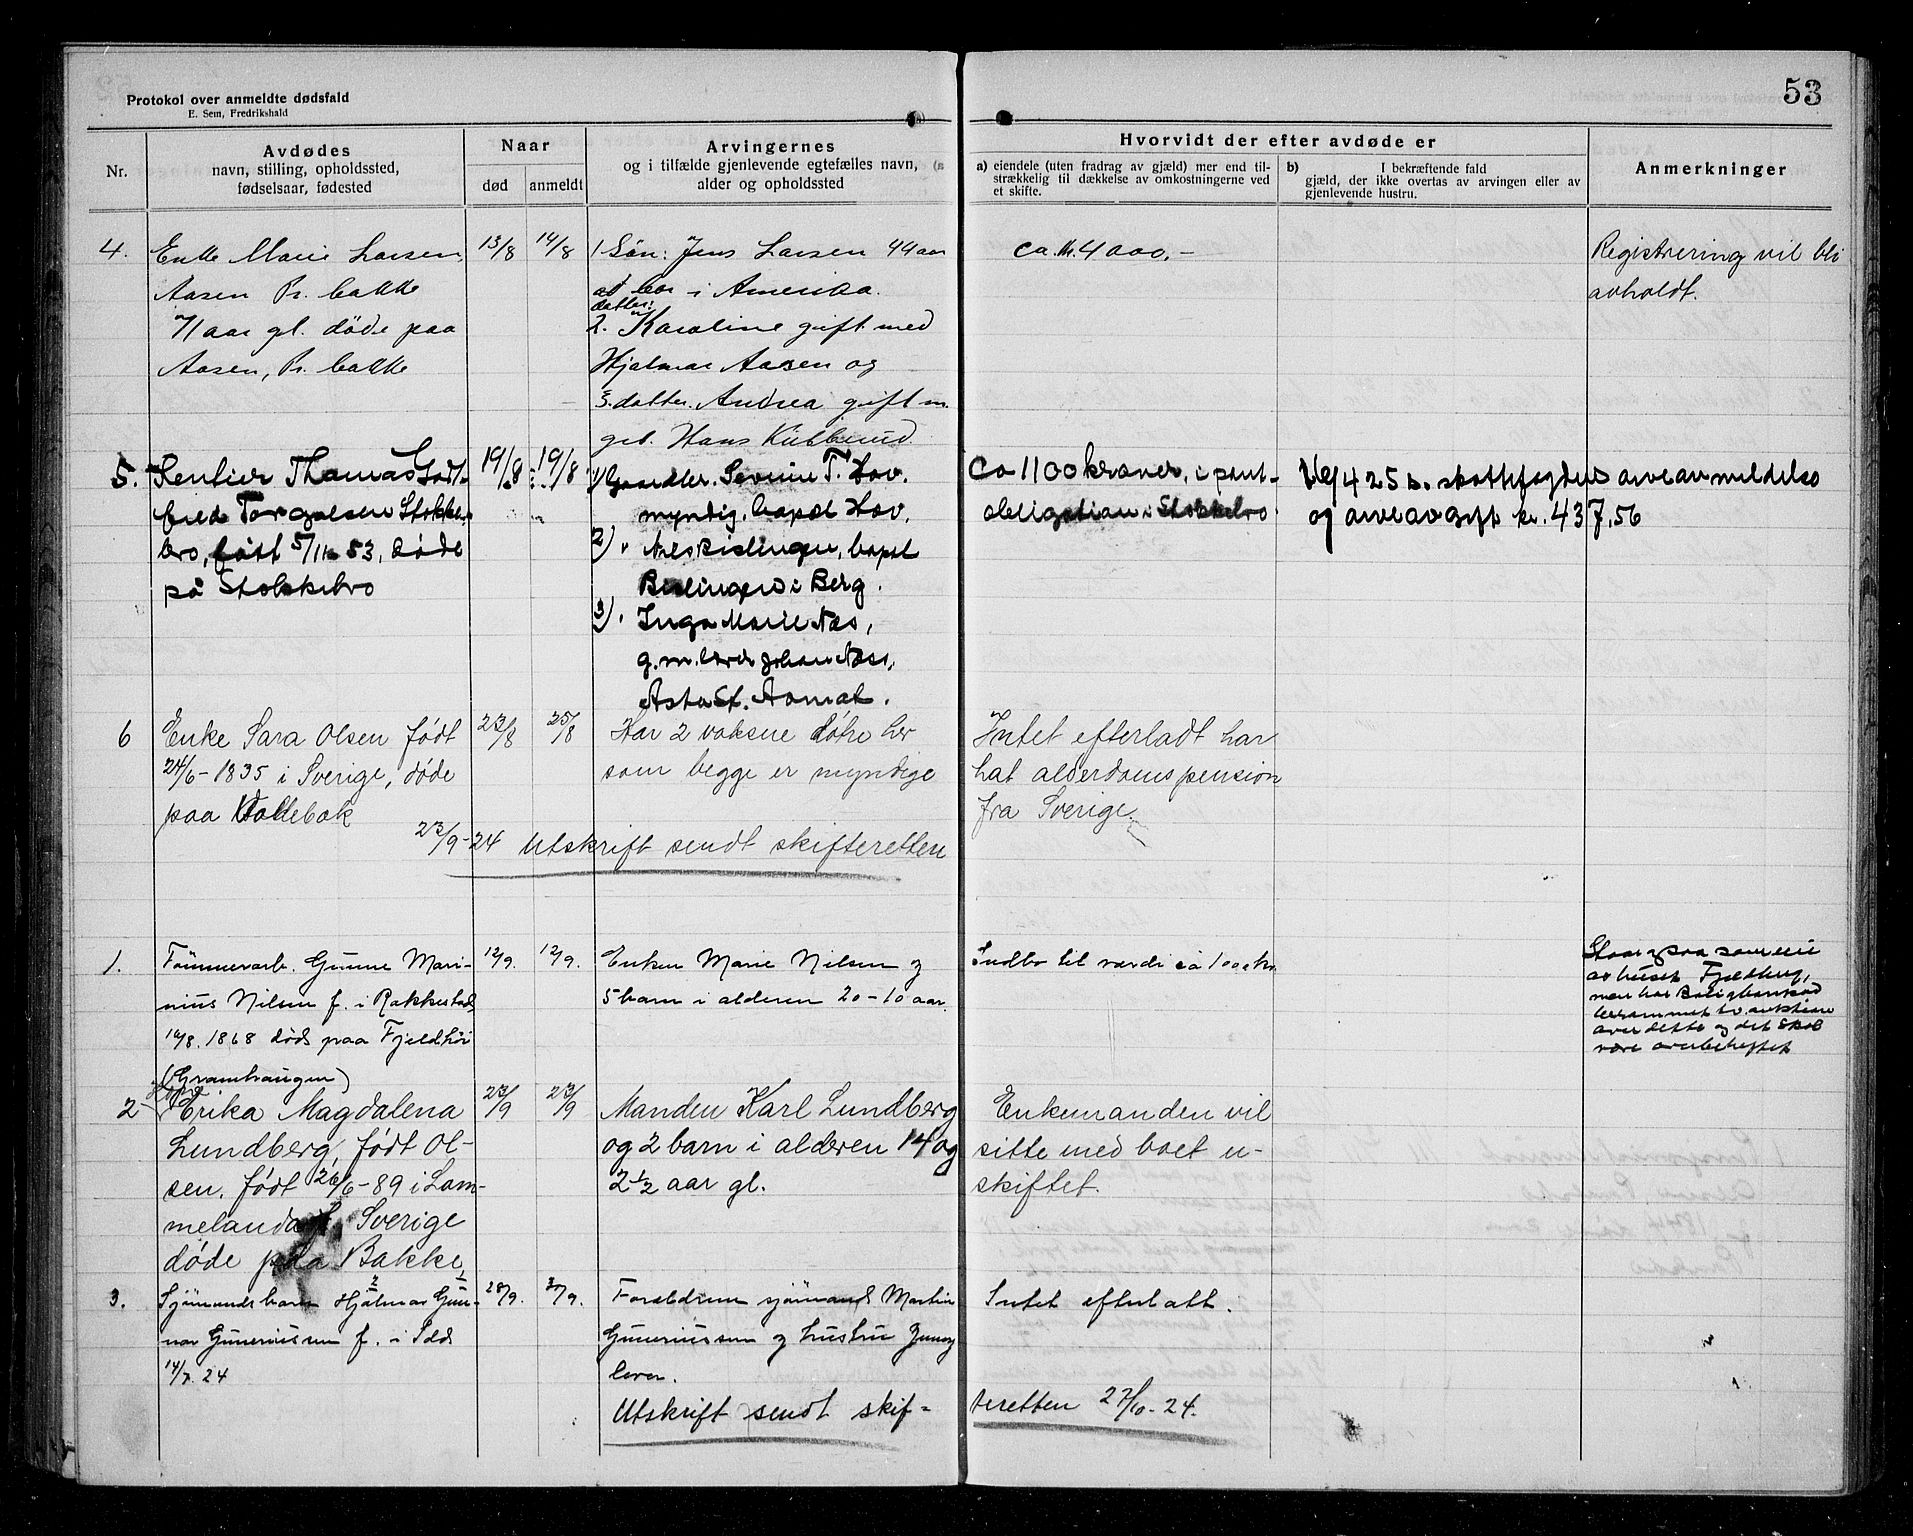 53
Protokol over anmeldte dødsfald
E. Sem, Fredrikshald
Nr.
Avdødes
navn, stilling, opholdssted,
fødselsaar, fødested
Naar
død
anmeldt
Arvingernes
og i tilfælde gjenlevende egtefælles navn,
alder og opholdssted
Hvorvidt der efter avdøde er
a) eiendele (uten fradrag av gjæld) mer end til-
strækkelig til dækkelse av omkostningerne ved
et skifte.
b) I bekræftende fald
gjæld, der ikke overtas av arvingen eller av
gjenlevende hustru.
Anmerkninger
4.
Enke Marie Larsen
Aasen Pr. bakke
71 aar gl. døde paa
Aasen, Pr. bakke
13/8
14/8
1 Søn: Jens Larsen 44 aar
bor i Amerika.
datter:
2. Karoline gift med
Hjalmar Aasen og
3. datter. Andrea gift m.
Hans
ca. kr. 4000,-
Registrering vil bli
avholdt.
5.
Rentier Thomas Godt-
fred Torgalsen Stokke-
bro, født 5/11 53, døde
på Stokkebro
19/8
19/8
1) Severine T. Hov.
myndig, bopæl Hov.
2) " Bislingen, bopæl
Bislingen i Berg.
3) " Inga Marie Næs,
g.m. Johan Næss,
Asta St. Aamot.
Ca 1100 kroner, i pant-
obligation i Stokkebro
425 skattefogdens arveanmeldelse
og arveavgift kr. 437,56
6
Enke Sara Olsen født
24/6-1835 i Sverige, døde
paa
23/8
25/8
Har 2 voksne døtre her
som begge er myndige
Intet efterladt har
hat alderdomspension
fra Sverige.
23/9-24 Utskrift sendt skifteretten
1.
Tømmerarb. Gunne Mari-
nius Nilsen f. i Rakkestad
16/8. 1868 død paa Fjeldhøi
(Gramhaugen)
12/9.
12/9.
Enken Marie Nilsen og
5 barn i alderen 20-10 aar.
Indbo til værdi ca 100 kr.
av huset
over dette og det skal
være overbeheftet
2
Erika Magdalena
Lundberg, født Ol-
sen, født 26/6-89 i Lom-
melanda, Sverige
døde paa Bakke
23/9
23/9
Manden Karl Lundberg
og 2 barn i alderen 14 og
2 1/2 aar gl.
Enkemanden vil
sitte med boet u-
skiftet.
3.
Sjømandsbarn Hjalmar Gun-
nar Guneriussen f. i Idd
14/7. 24
28/9.
30/9.
Forældrene sjømand Martin
Guneriussen og hustru
lever.
Intet efterlatt.
Utskrift sendt skif-
teretten 27/10-24.